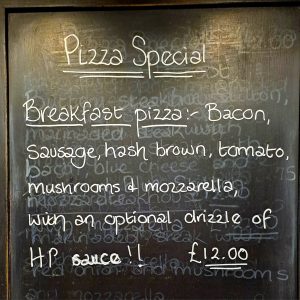 Pizza Special
Breakfast pizza:- Bacon,
Sausage, hash brown, tomato,
mushrooms & mozzarella,
with an optional drizzle of
HP sauce !! £12.00